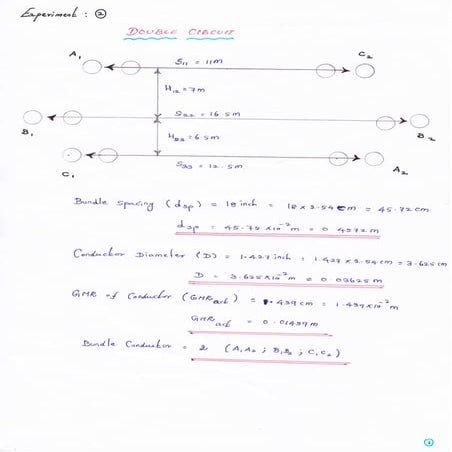 Experiment : ②
DOUBLE CIRCUIT
A₁ C₂
S₁₁ = 11m
H₁₂ = 7m
S₂₂ = 16.5m
B₁ B₂
H₂₃ = 6.5m
S₃₃ = 12.5m
C₁ A₂
Bundle Spacing (dsp) = 18 inch = 18 x 2.54 cm = 45.72 cm
dsp = 45.72 x10⁻² m = 0.4572 m
Conductor Diameter (D) = 1.427 inch = 1.427 x 2.54 cm = 3.625 cm
D = 3.625x10⁻² m = 0.03625 m
GMR of Conductor (GMR) = 1.439 cm = 1.439x10⁻² m
GMR = 0.01439 m
Bundle Conductor = 2 (A₁A₂ ; B₁B₂ ; C₁C₂)